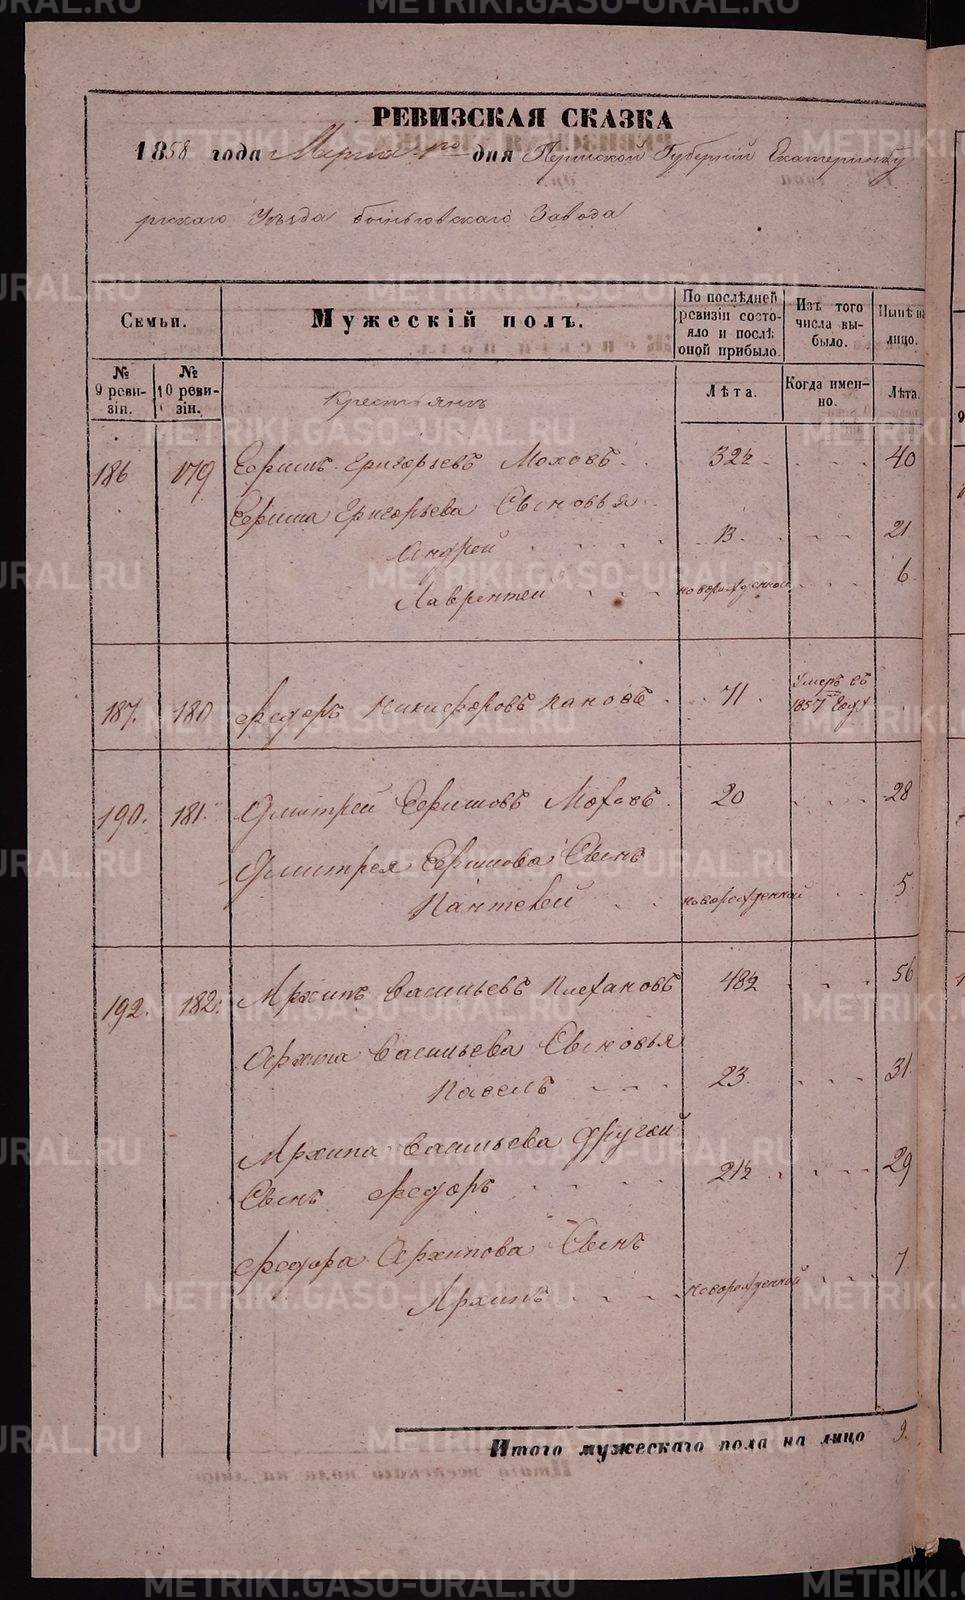 РЕВИЗСКАЯ СКАЗКА
1858 года Марта 1го дня Пермской Губерніи Екатеринбу
ргскаго Уѣзда Быньговскаго Завода
Семьи.
Мужескій полъ.
По послѣдней ревизіи состояло и послѣ оной прибыло.
Изъ того числа выбыло.
Нынѣ на лицо.
№ 9 ревизіи.
№ 10 ревизіи.
Крестьянъ
Лѣта.
Когда именно.
Лѣта.
186 179 Ефимъ Григорьевъ Моховъ 32½ 40
Ефима Григорьева Сыновья
Андрей 13 21
Лаврентей новорожденной 6
187. 180 Федоръ Никифоровъ Пановъ 71 Умеръ въ 1857 Году
190. 181. Дмитрей Ефимовъ Моховъ 20 28
Дмитрея Ефимова Сынъ
Пантелей новорожденной 5
192. 182. Архипъ Васильевъ Плехановъ 48½ 56
Архипа Васильева Сыновья
Павелъ 23 31
Архипа Васильева другой
Сынъ Федоръ 21½ 29
Федора Архипова Сынъ
Архипъ новорожденной 7
Итого мужескаго пола на лицо 9.
METRIKI.GASO-URAL.RU